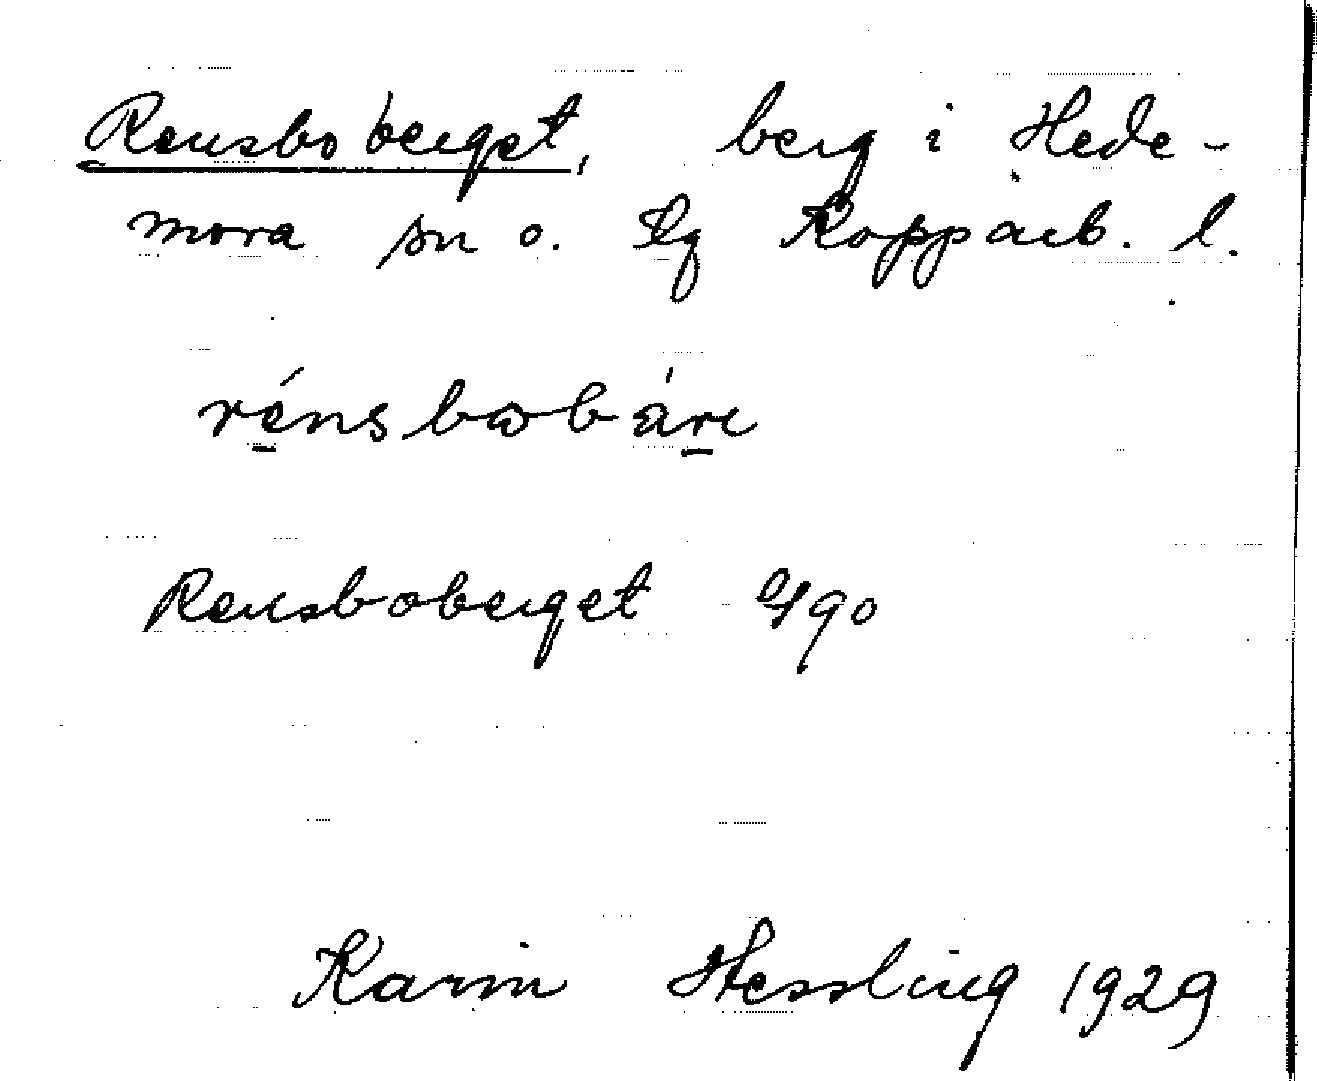 Rensboberget, berg i Hede-
mora sn o. lg Kopparb. l.
rénsbωbáre
Rensboberget 4/90
Karin Hessling 1929